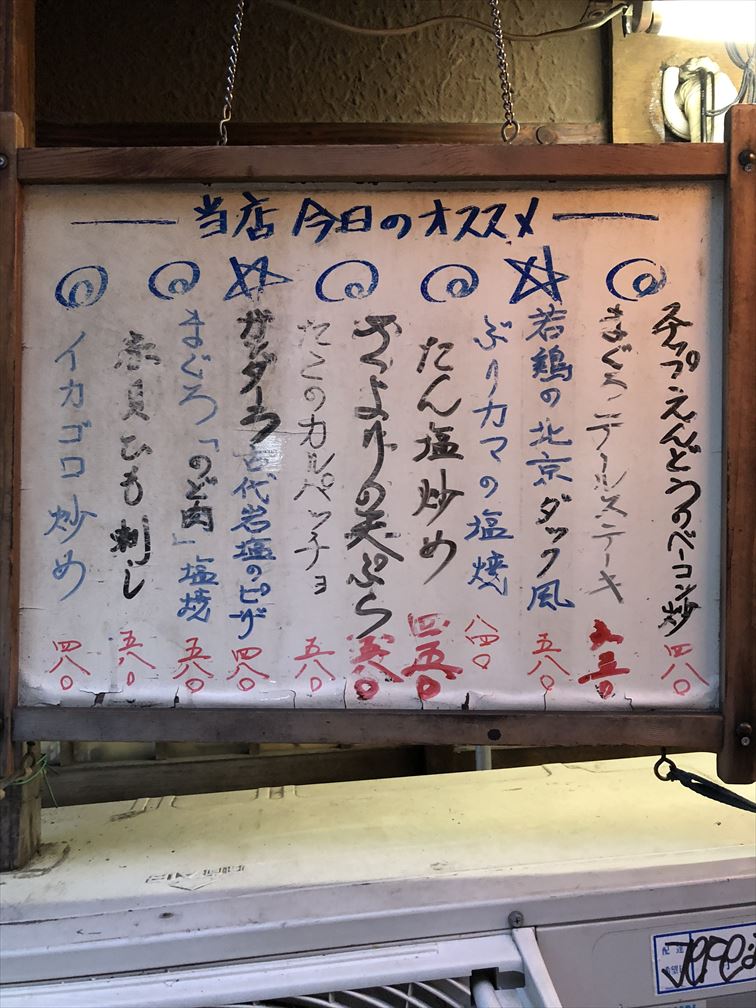 当店 今日のオススメ
スナップえんどうのベーコン炒 四八〇
まぐろテールステーキ 五三〇
若鶏の北京ダック風 五八〇
ぶりカマの塩焼 八四〇
たん塩炒め 四五〇
さよりの天ぷら 五八〇
たこのカルパッチョ 五八〇
ガンダーラ古代岩塩のピザ 四八〇
まぐろ「のど肉」塩焼 五八〇
赤貝ひも刺し 五八〇
イカゴロ炒め 四八〇